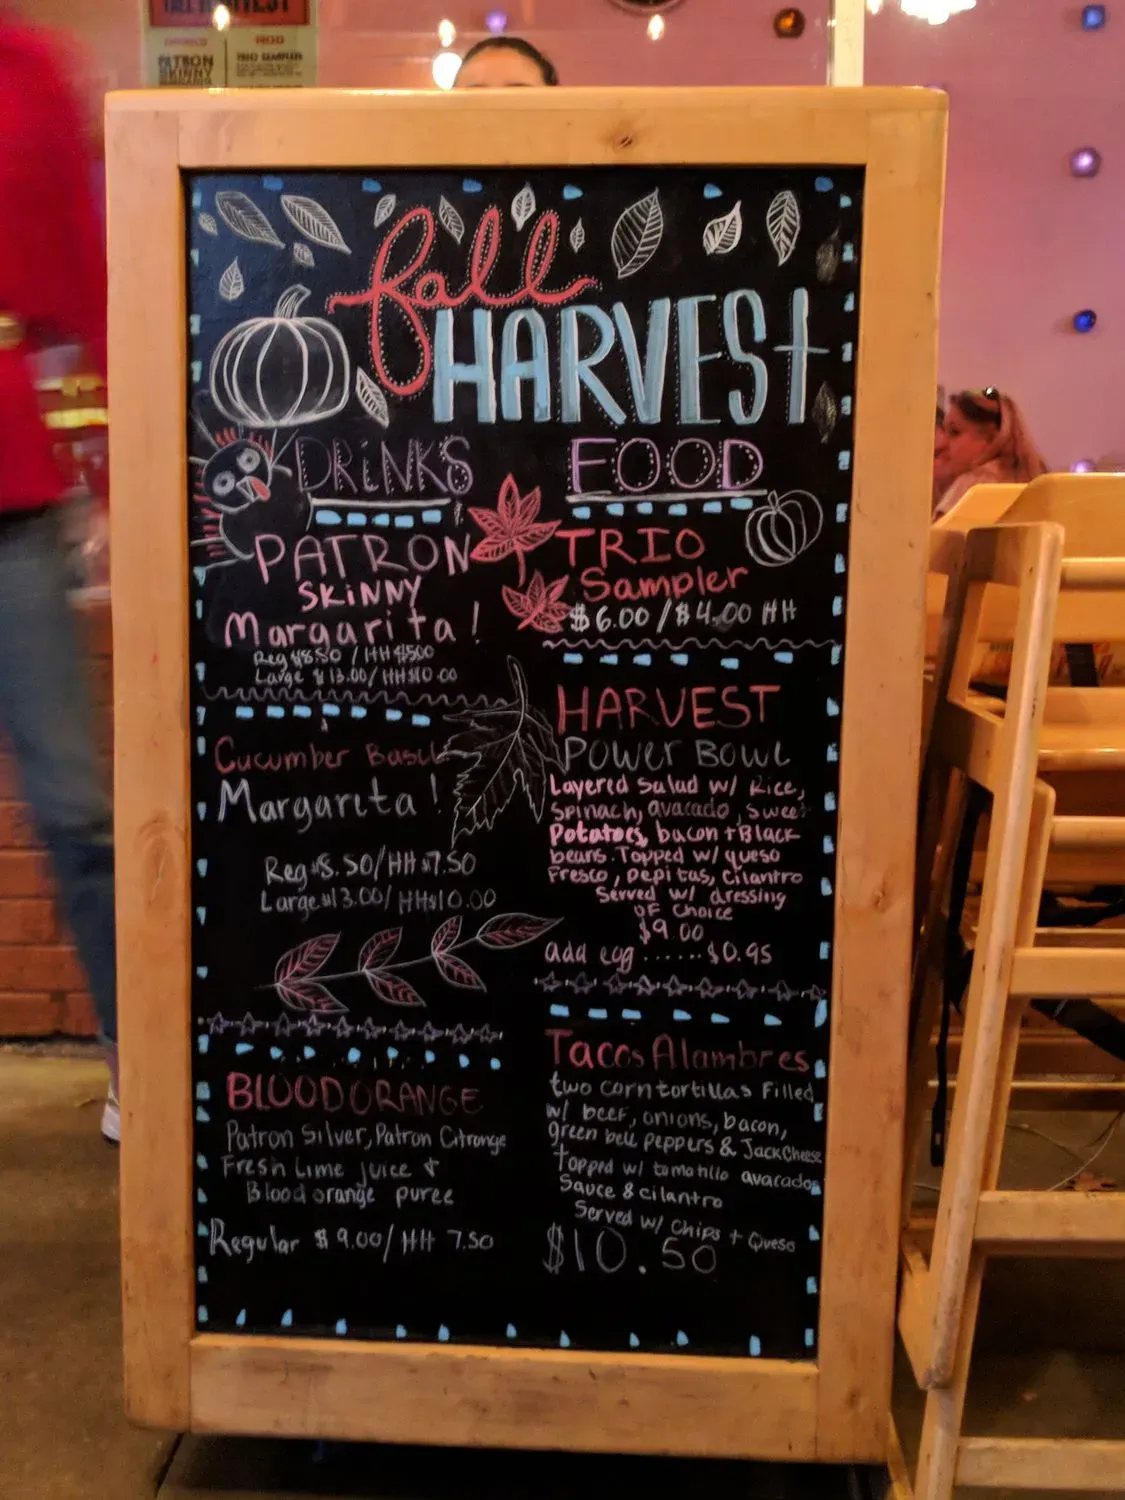 TRIO
PATRON
SKINNY
TRIO SAMPLER
fall
HARVEST
DRiNKS
PATRON
SKiNNY
Margarita!
Reg $8.50 / HH $500
Large $13.00/ HH$10.00
Cucumber Basil
Margarita!
Reg $8.50/HH $7.50
Large $13.00/ HH$10.00
BLOOD ORANGE
Patron Silver, Patron Citronge
Fresh Lime juice &
Blood orange puree
Regular $9.00/ HH 7.50
FOOD
TRIO
Sampler
$6.00 /$4.00 HH
HARVEST
POWER BOWL
Layered Salad w/ Rice,
Spinach, avacado, sweet
Potatoes, bacon + Black
beans. Topped w/ queso
Fresco, pepitas, cilantro
Served w/ dressing
OF Choice
$9.00
add egg ...... $0.95
Tacos Alambres
two corn tortillas Filled
w/ beef, onions, bacon,
green bell peppers & Jack Cheese
topped w/ tomatillo avacado
Sauce & cilantro
Served w/ Chips + Queso
$10.50